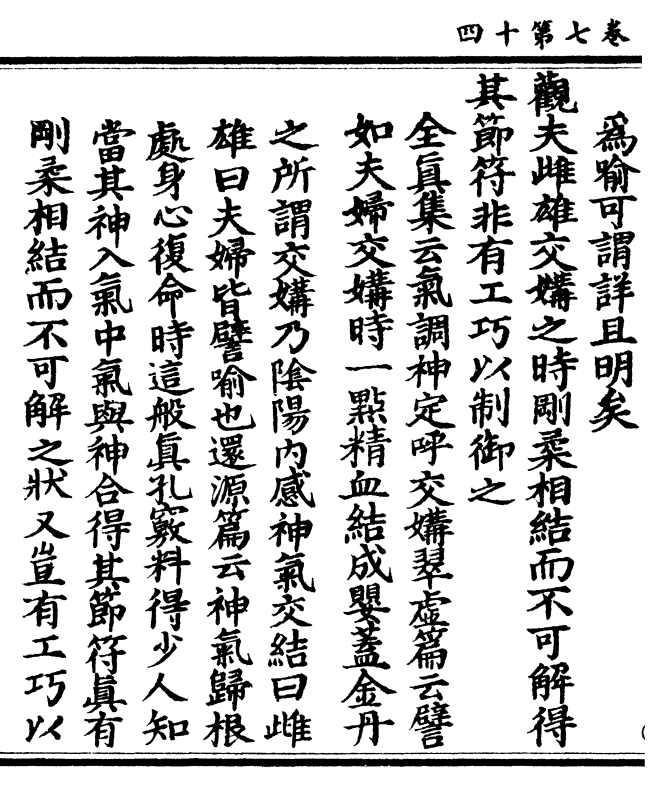 卷七第十四
爲喻可謂詳且明矣
觀夫雌雄交媾之時剛柔相結而不可解得
其節符非有工巧以制御之
全眞集云氣調神定呼交媾翠虛篇云譬
如夫婦交媾時一點精血結成嬰蓋金丹
之所謂交媾乃陰陽內感神氣交結曰雌
雄曰夫婦皆譬喻也還源篇云神氣歸根
處身心復命時這般眞孔竅料得少人知
當其神入氣中氣與神合得其節符眞有
剛柔相結而不可解之狀又豈有工巧以